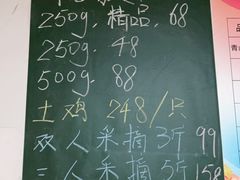 250g. 精品. 68
250g. 48
500g. 88
土鸡 248/只
双人采摘3斤 99
三人采摘5斤 158
品
青